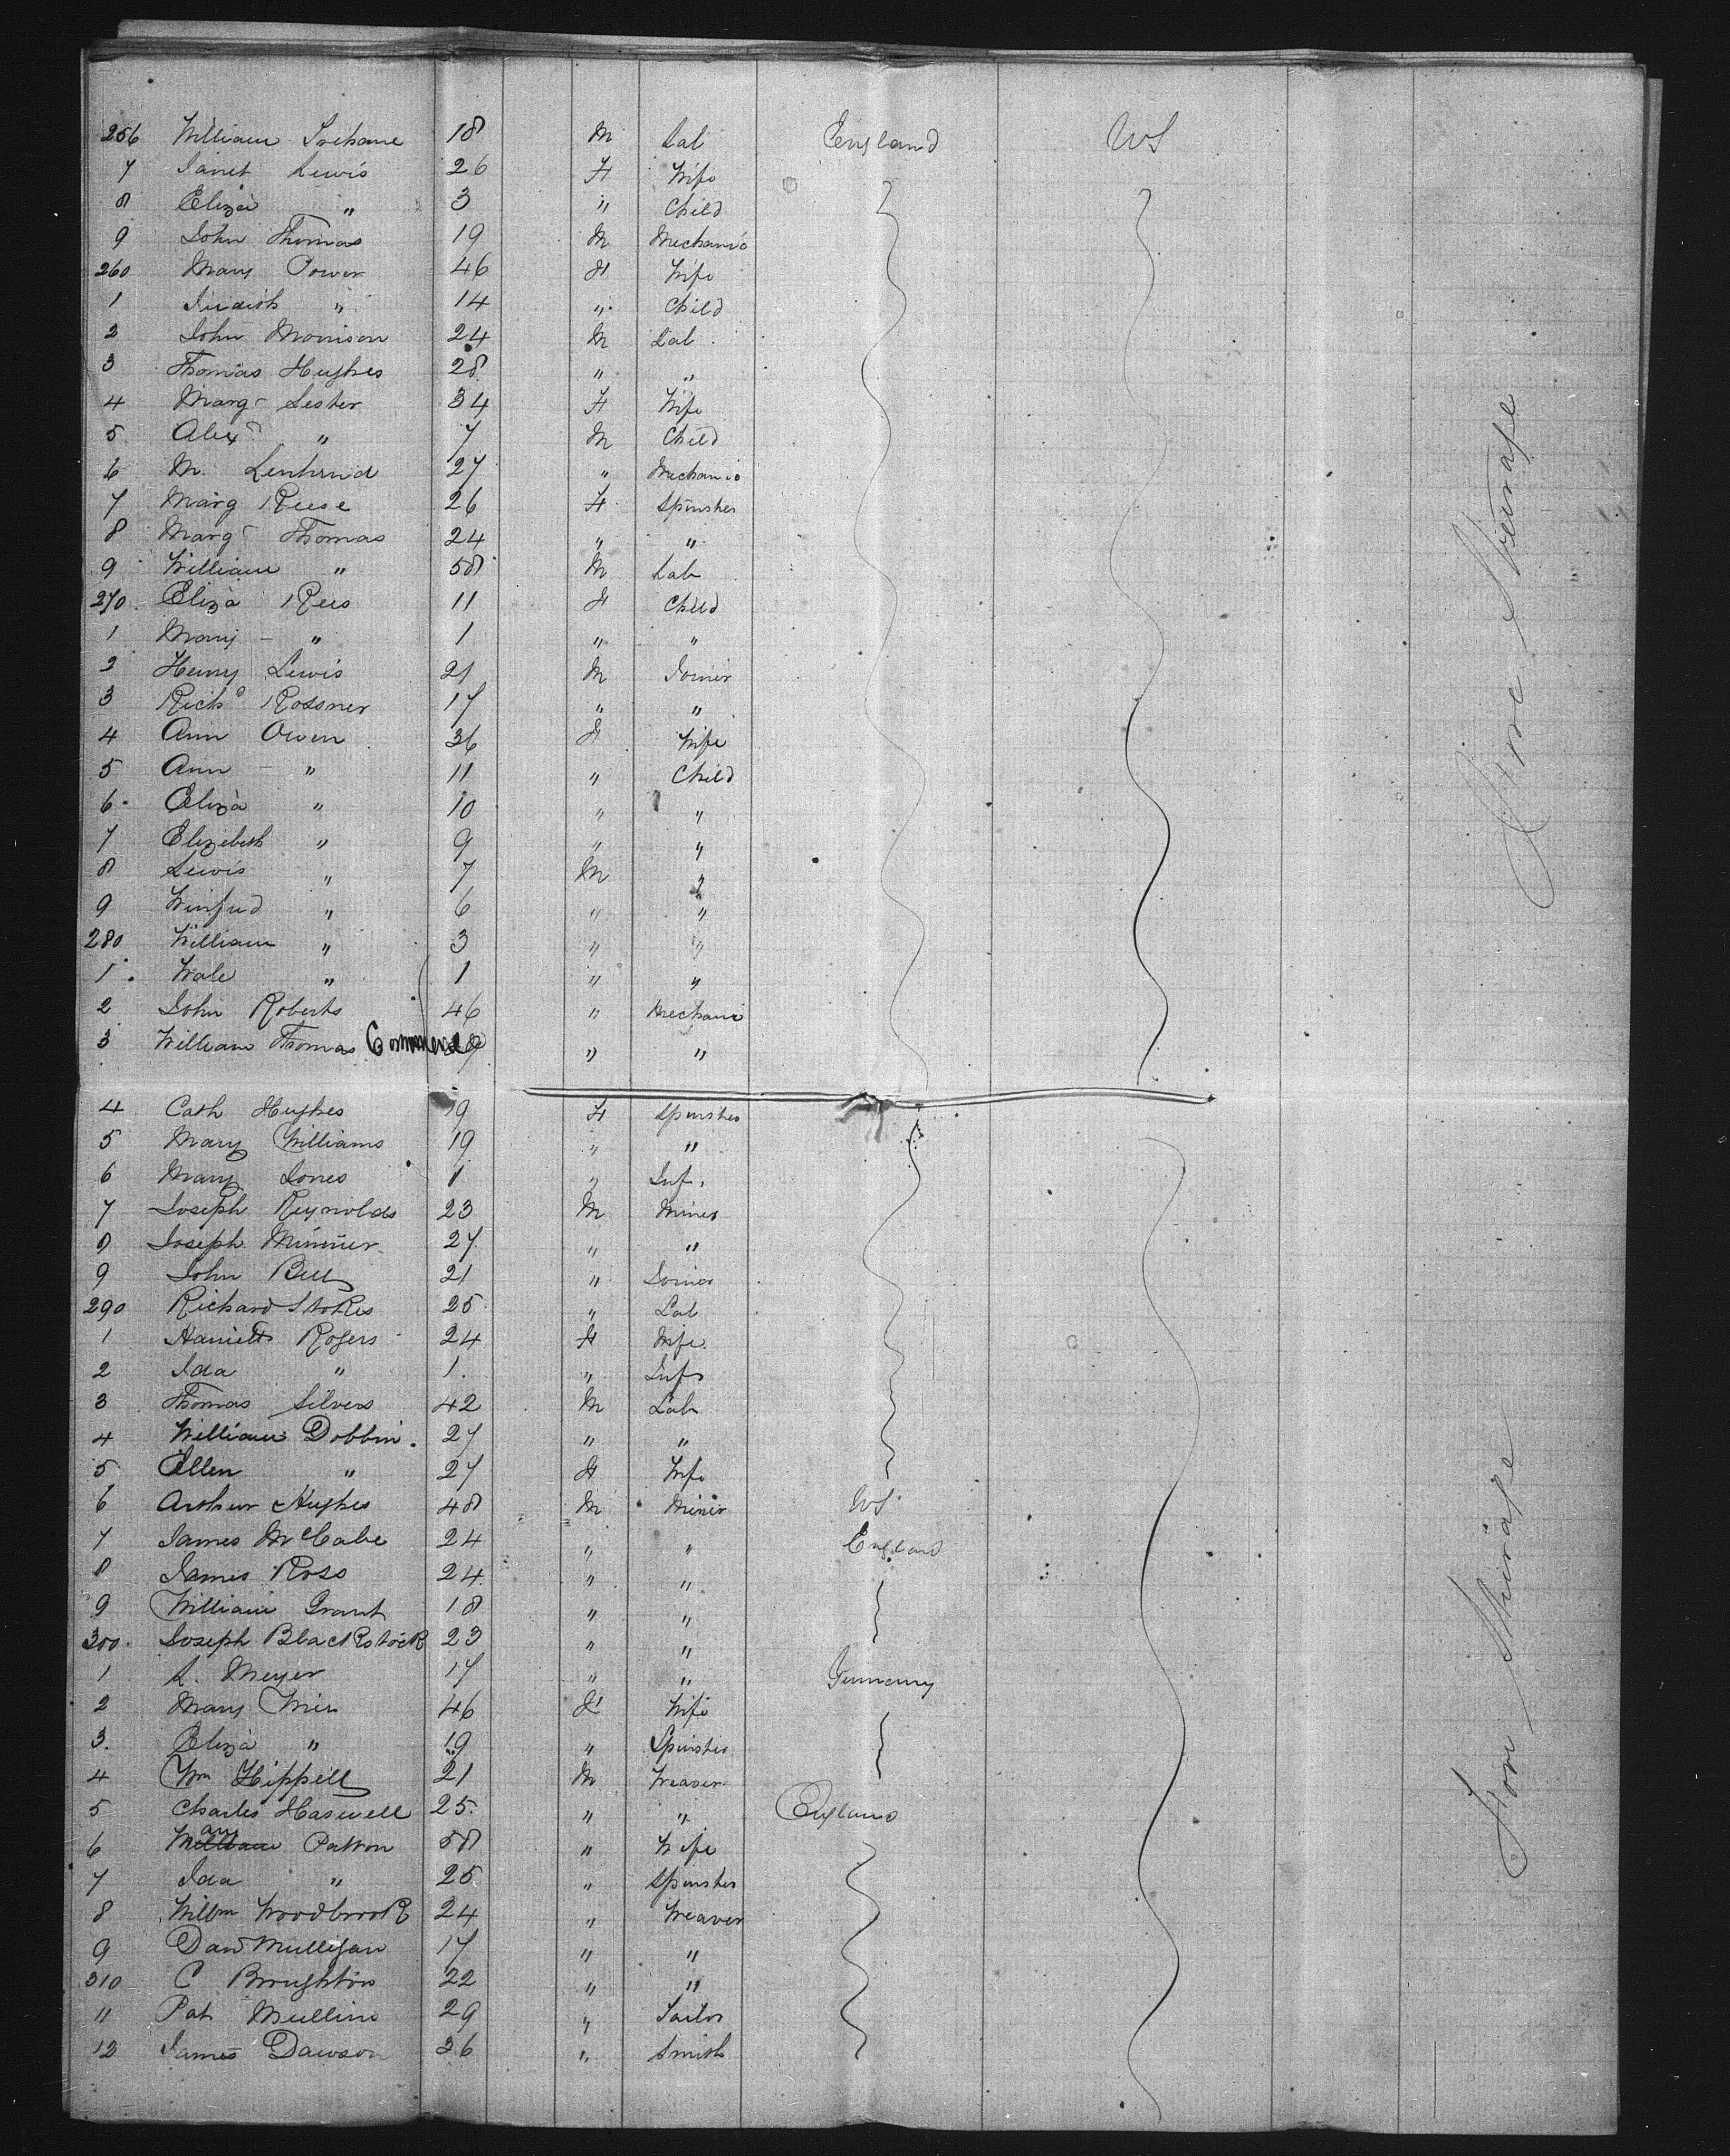 256 William Trehane 18 M Lab England US
7 Janet Lewis 26 F Wife
8 Eliza " 3 " Child
9 John Thomas 19 M Mechanic
260 Mary Power 46 F Wife
1 Judith " 14 " Child
2 John Morrison 24 M Lab
3 Thomas Hughes 28 " "
4 Marg Lester 34 F Wife
5 Alexr " 7 M Child
6 M. 27 " Mechanic
7 Marg Reese 26 F Spinster
8 Marg Thomas 24 " "
9 William " 58 M Lab
270 Eliza Rees 11 F Child
1 Mary - " 1 " "
2 Henry Lewis 21 M Joiner
3 Richd Rossner 17 " "
4 Ann Owen 36 F Wife
5 Ann - " 11 " Child
6 Eliza " 10 " "
7 Elizebeth " 9 " "
8 Lewis " 7 M "
9 Winfred " 6 " "
280 William " 3 " "
1 Wale " 1 " "
2 John Roberts 46 " Mechanic
3 William Thomas Commence " "
4 Cath Hughes 19 F Spinster
5 Mary Williams 19 " "
6 Mary Jones 1 " Inf.
7 Joseph Reynolds 23 M Miner
8 Joseph Minmer 27 " "
9 John Bell 21 " Joiner
290 Richard Stokes 25 " Lab
1 Harriett Rogers 24 F Wife
2 Ida " 1 " Inft
3 Thomas Silvers 42 M Lab
4 William Dobbin 27 " "
5 Ellen " 27 F Wife
6 Arthur Hughes 48 M Miner US
7 James McCabe 24 " " England
8 James Ross 24 " "
9 William Grant 18 " "
300 Joseph Blackstock 23 " "
1 A. Meyer 17 " " Germany
2 Mary Wier 46 F Wife
3 Eliza " 19 " Spinster
4 Wm Hippell 21 M Weaver
5 Charles Haswell 25 " " England
6 Patton 58 " Wife
7 Ida " 25 " Spinster
8 Willm Woodbrook 24 " Weaver
9 Dan Mulligan 17 " "
310 C Broughton 22 " "
11 Pat Mullins 29 " Tailor
12 James Dawson 26 " Smith
Fore Steerage
Fore Steerage